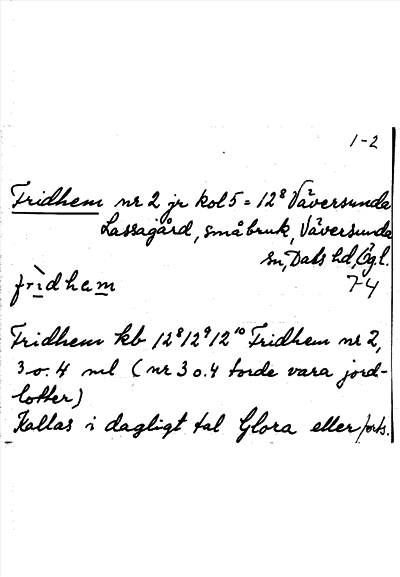 1-2
Fridhem nr 2 jr kol 5 = 12⁸ Väversunda
Lassagård, småbruk, Väversunda
sn, Dals hd, Ögl.
fr̀idhem 74
Fridhem kb 12⁸12⁹12¹⁰ Fridhem nr 2,
3 o. 4 ml (nr 3 o 4 torde vara jord-
lotter)
Kallas i dagligt tal Glora eller forts.